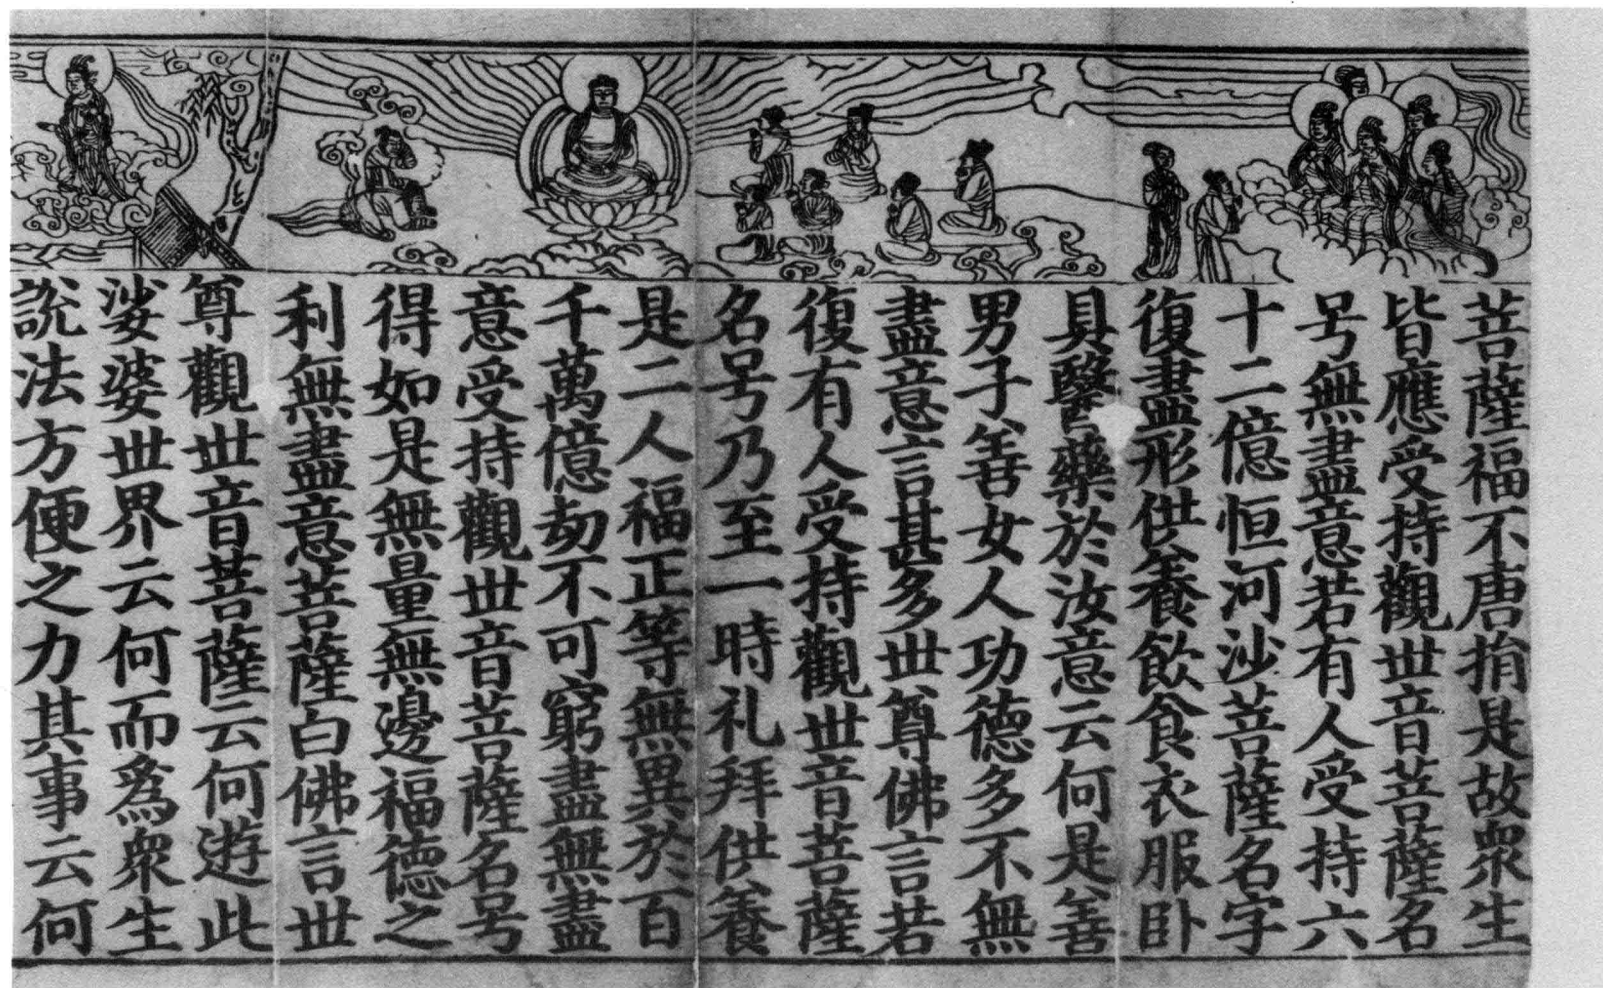 菩薩福不唐捐是故衆生
皆應受持觀丗音菩薩名
号無盡意若有人受持六
十二億恒河沙菩薩名字
復盡形供養飲食衣服卧
具醫藥於汝意云何是善
男子善女人功德多不無
盡意言甚多丗尊佛言若
復有人受持觀丗音菩薩
名号乃至一時礼拜供養
是二人福正等無異於百
千萬億劫不可窮盡無盡
意受持觀丗音菩薩名号
得如是無量無邊福德之
利無盡意菩薩白佛言丗
尊觀丗音菩薩云何遊此
娑婆丗界云何而爲衆生
説法方便之力其事云何